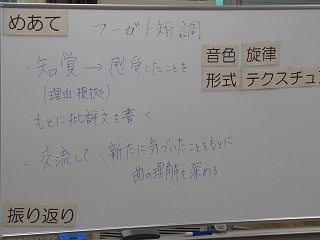 めあて
フーガト短調
音色 旋律
形式 テクスチュア
・知覚→感受したことを
(理由・根拠)
もとに批評文を書く
・交流して、新たに気づいたことをもとに
曲の理解を深める
振り返り